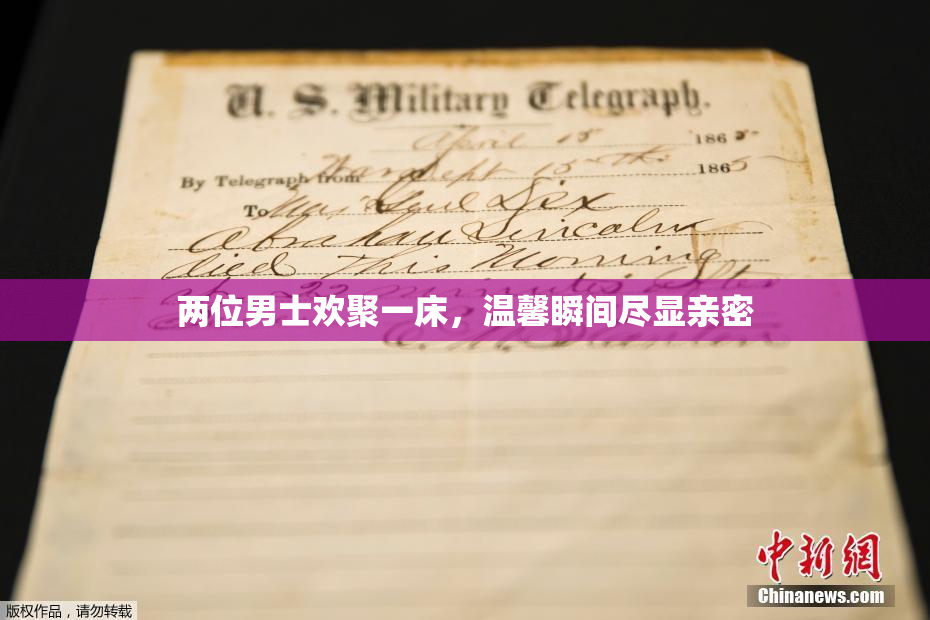 U. S. Military Telegraph.
April 15 1865
By Telegraph from War Dept 15th 1865
To Maj Genl Dix
Abraham Lincoln
died This Morning
at 22 minutes after
两位男士欢聚一床，温馨瞬间尽显亲密
中新网
Chinanews.com
版权作品，请勿转载